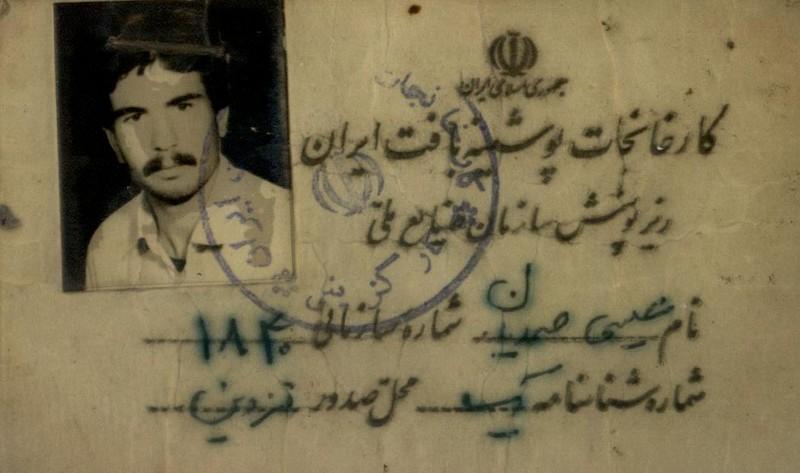 جمهوری اسلامی ایران
کارخانجات پوشینه بافت ایران
زیر پوشش سازمان صنایع ملی
نام عیسی صمدیان شماره سازمانی ۱۸۴۰
شماره شناسنامه یک محل صدور قزوین